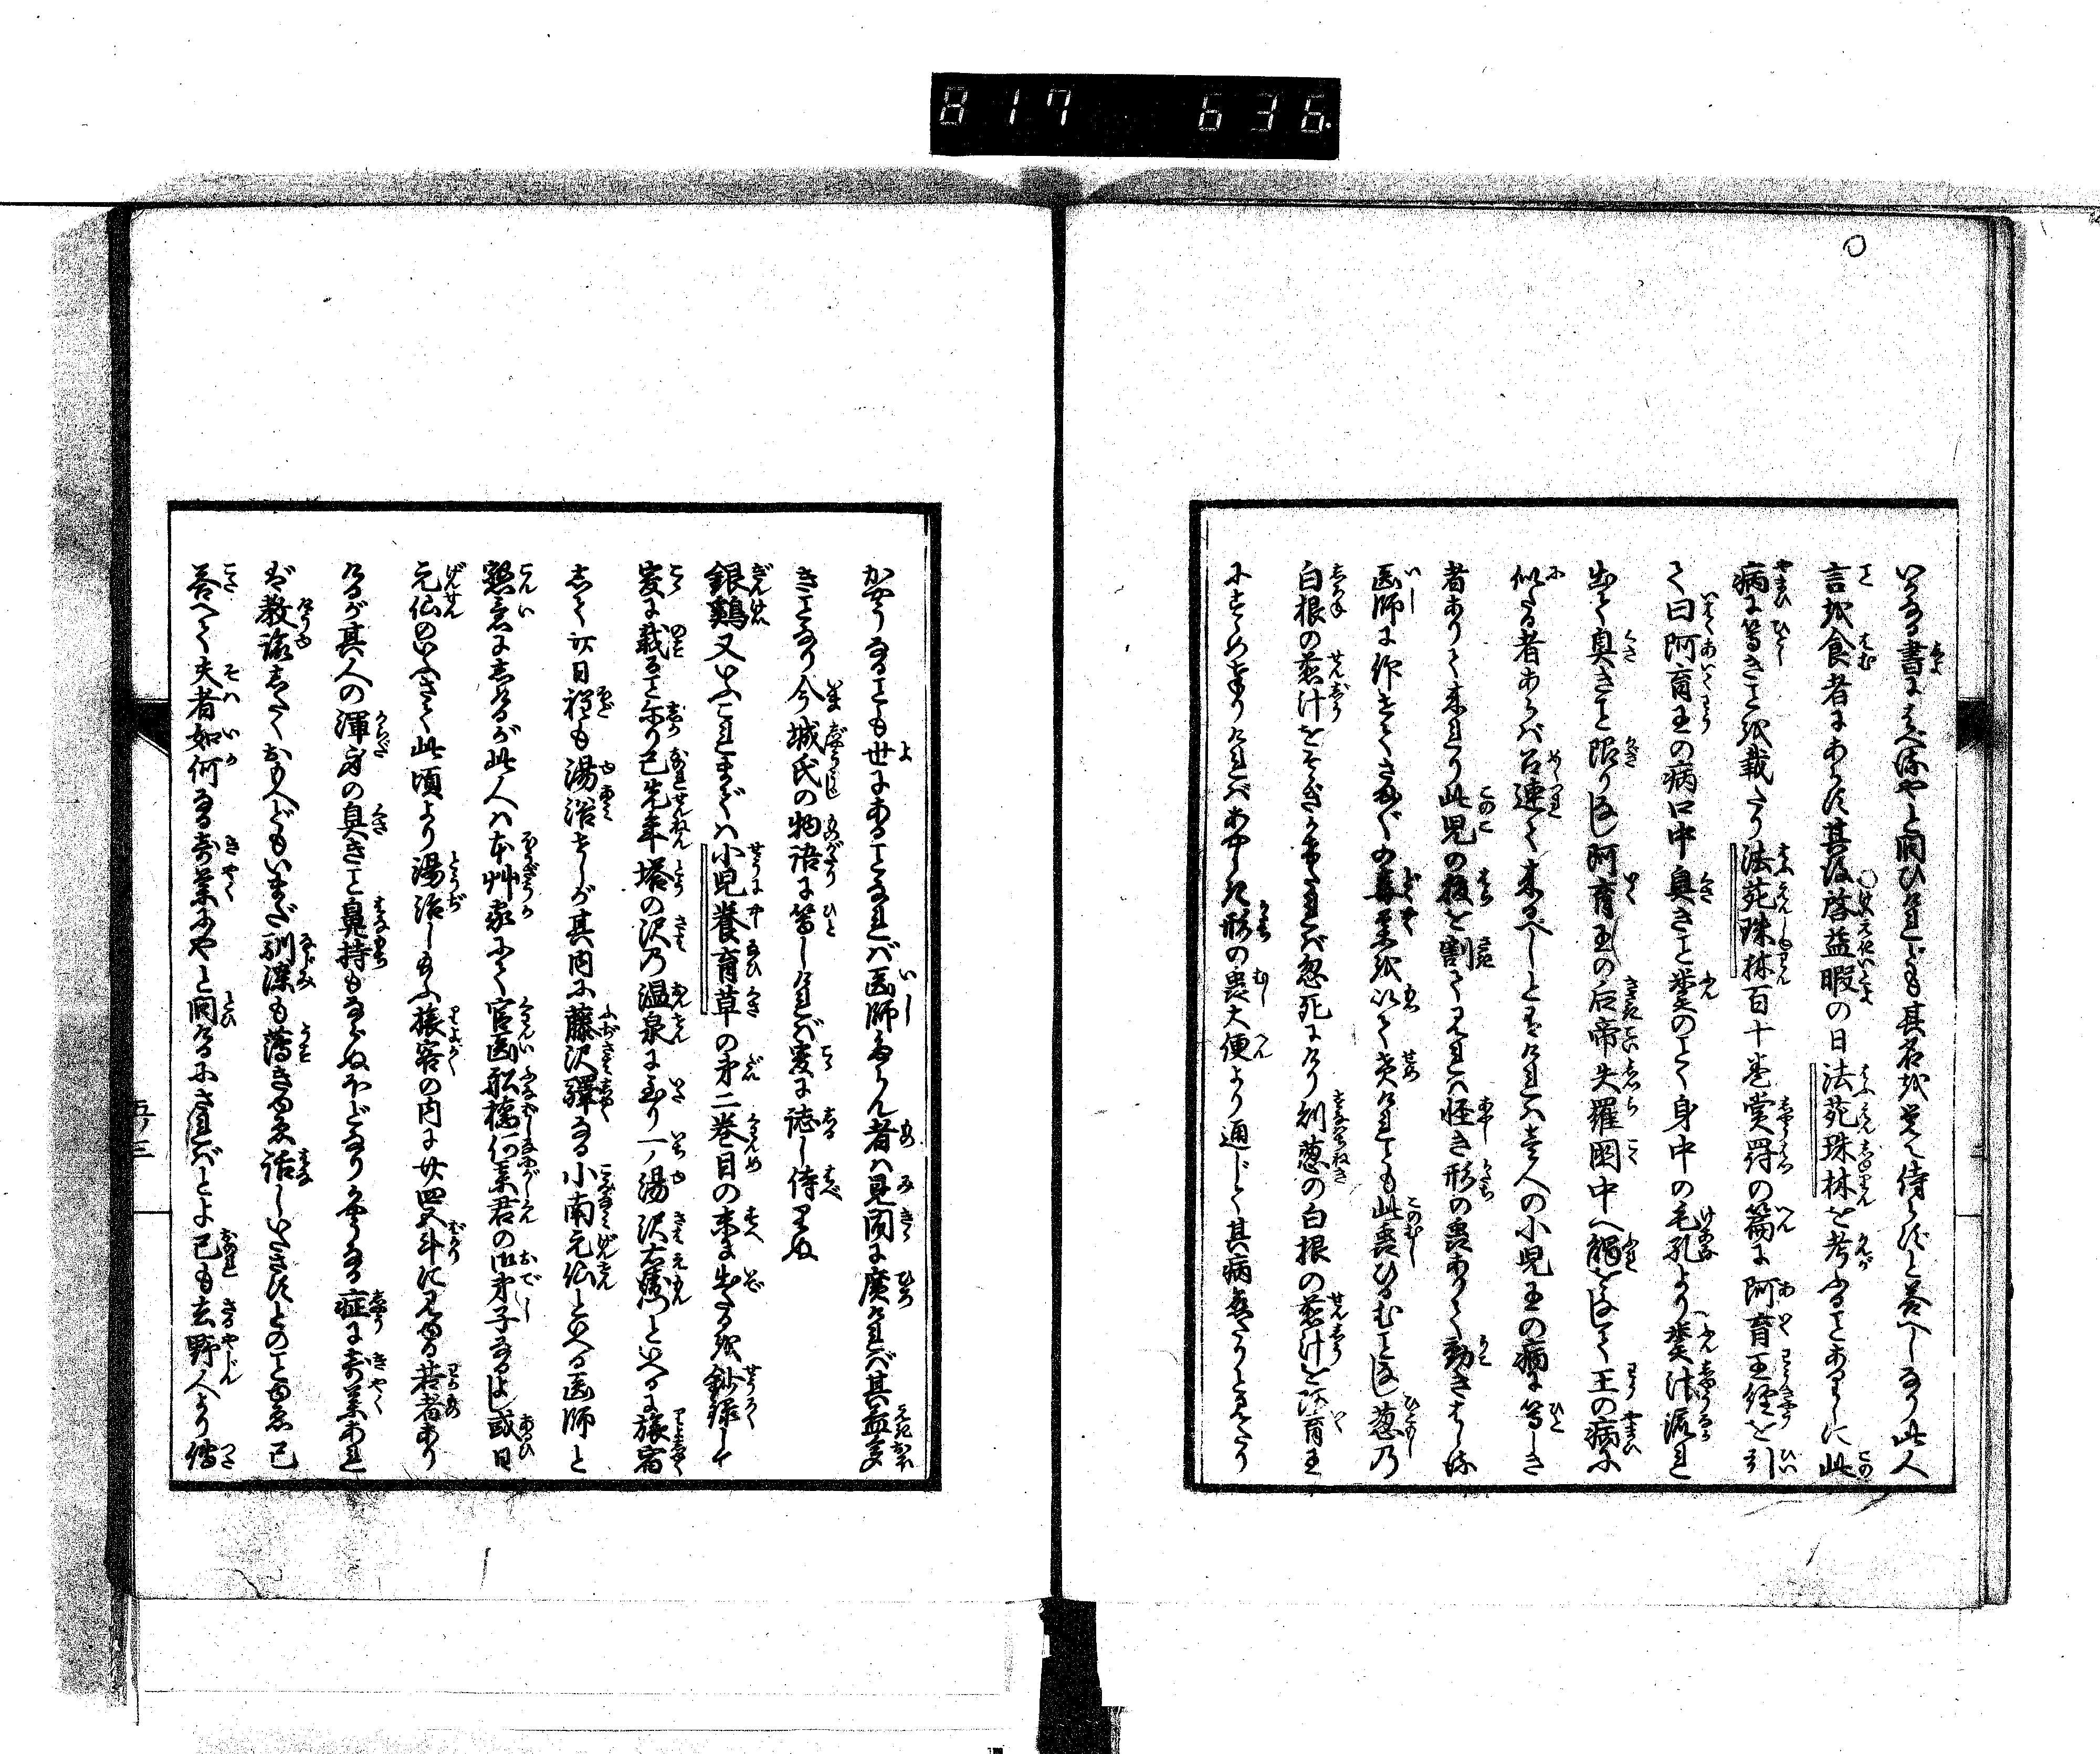 817 636
いかなる書にはべるやと問ひければども其名は覚え侍らずと答へしなり此人
言を食者にあらず其後啓益暇の日法苑珠林を考ふることありしに此
病に等きことを載たり法苑珠林百十巻賞罰の篇に阿育王経を引
て曰阿育王の病口中臭きこと糞のごとく身中の毛孔より糞汁流れ
出て臭きこと限りなし阿育王の后帝失羅国中へ觸をなして王の病に
似たる者あらバ召連て来るべしとなりければ壱人の小児王の病に等しき
者ありて来れり此児の腹を割て見れバ怪き形の虫ありて動きはしる
医師に作せてさまざまの毒薬を以て責けれども此虫ひるむことなし葱乃
白根の煮汁をそそぎかけたれバ忽死にけり則葱の白根の煮汁を阿育王
にすすめ奉りければあやしき形の虫大便より通じて其病愈たりと見えたり
かやうなることも世にあることなれバ医師たらん者ハ見聞に廣ければ其益多
きことなり今城氏の物語に等しければ爰に誌し侍りぬ
銀鶏又いふこれまでハ小児養育草の第二巻目の末に出たるを鈔録して
爰に載ることに尓り己先年塔の沢乃温泉に至り一ノ湯沢右衛門といへるに旅宿
して廿日程も湯浴せしが其内に藤沢驛なる小南元仙といへる医師と
懇意になりけるが此人ハ本艸家にて官医船橋何某君の御弟子なるよし或日
元仙のいへるハ此頃より湯治し玉ふ旅客の内に廿四五斗に見ゆる若者あり
けるが其人の渾身の臭きこと鼻持もならぬほどなりかかる症に奇薬あれ
ば教諭したくおもへどもいまだ馴染も薄きゆゑ話しいださずとのことゆゑ己
答へて夫者如何なる奇薬にやと問けるにさればとよ己も去野人より傳